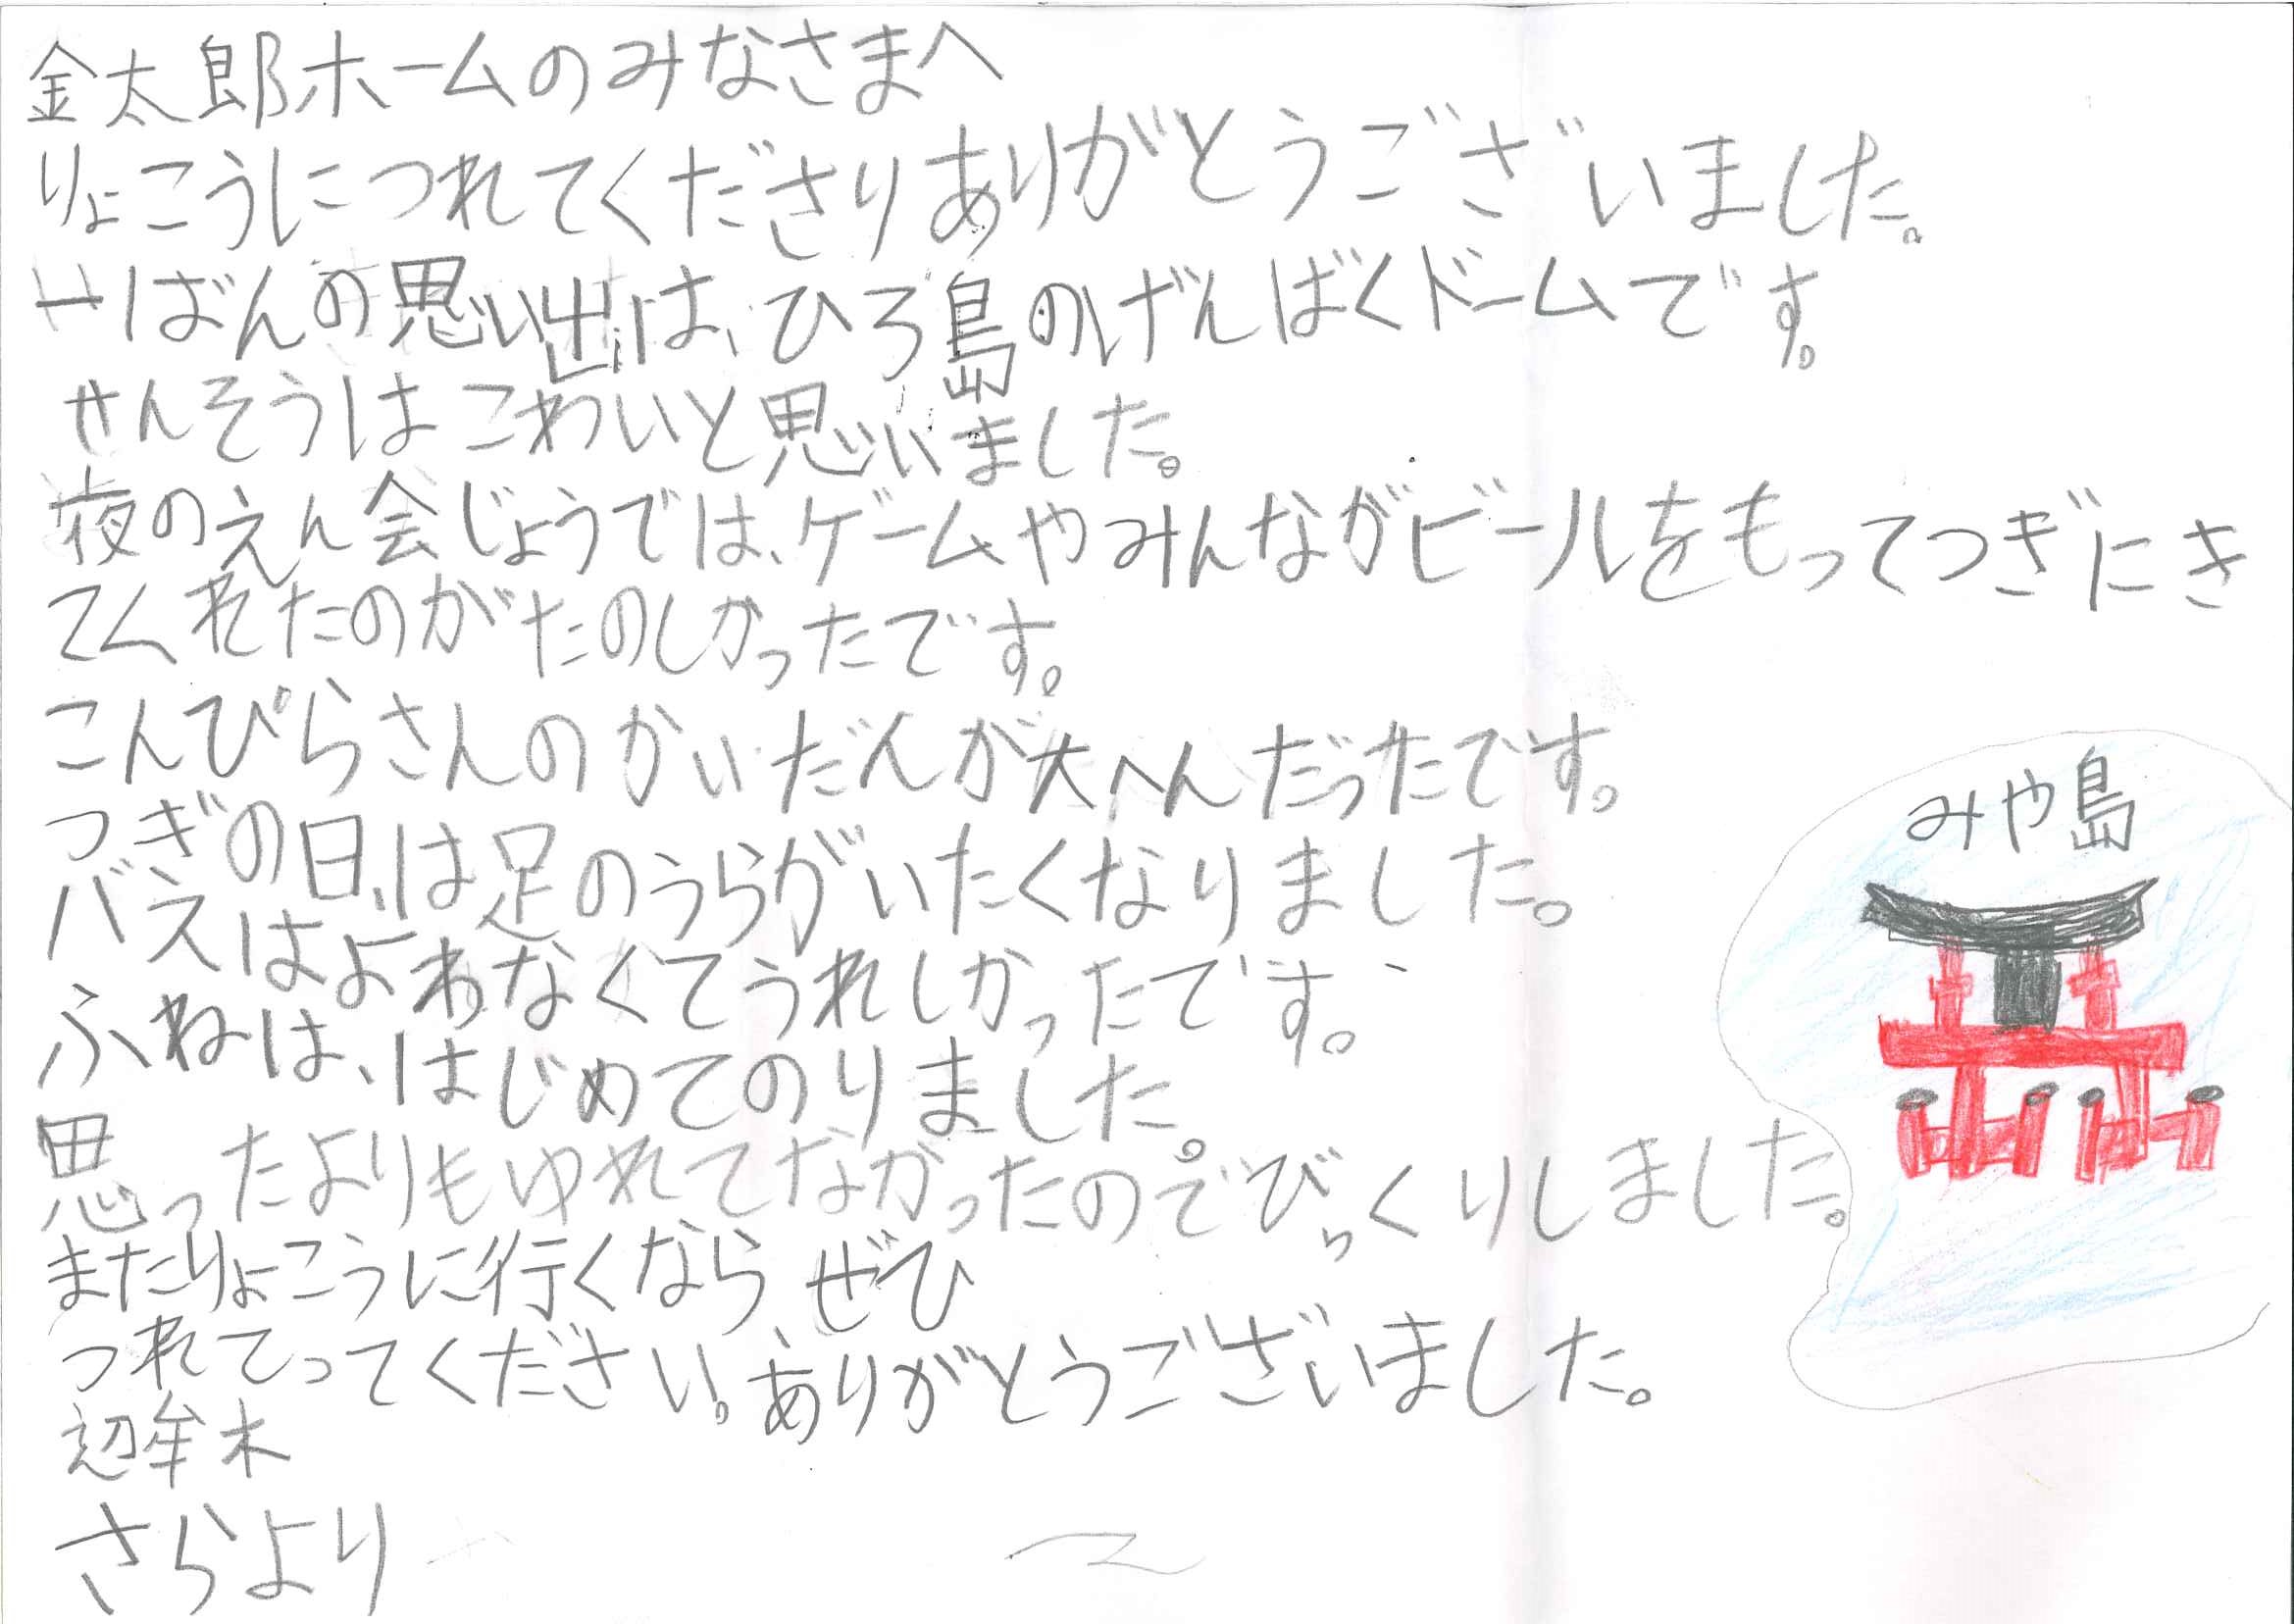 金太郎ホームのみなさまへ
りょこうにつれてくださりありがとうございました。
一ばんの思い出は、ひろ島のげんばくドームです。
せんそうはこわいと思いました。
夜のえん会じょうでは、ゲームやみんながビールをもってつぎにき
てくれたのがたのしかったです。
こんぴらさんのかいだんが大へんだったです。
つぎの日は足のうらがいたくなりました。
バスはよわなくてうれしかったです。
ふねは、はじめてのりました。
思ったよりもゆれてなかったのでびっくりしました。
またりょこうに行くならぜひ
つれてってください。ありがとうございました。
辺牟木
さらより
みや島